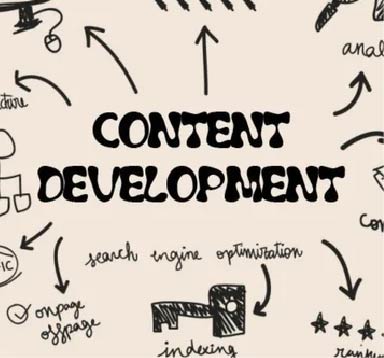 CONTENT
DEVELOPMENT
search engine optimization
onpage
offpage
indexing